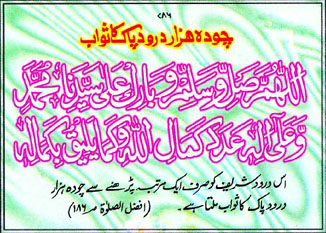 ۷۸۶
چودہ ہزار درود پاک کا ثواب
اللهم صل وسلم وبارك على سيدنا محمد
وعلى اله عدد كمال الله وكما يليق بكماله
اس درود شریف کو صرف ایک مرتبہ پڑھنے سے چودہ ہزار
درود پاک کا ثواب ملتا ہے۔ (افضل الصلوٰۃ صـ ۱۸۶)